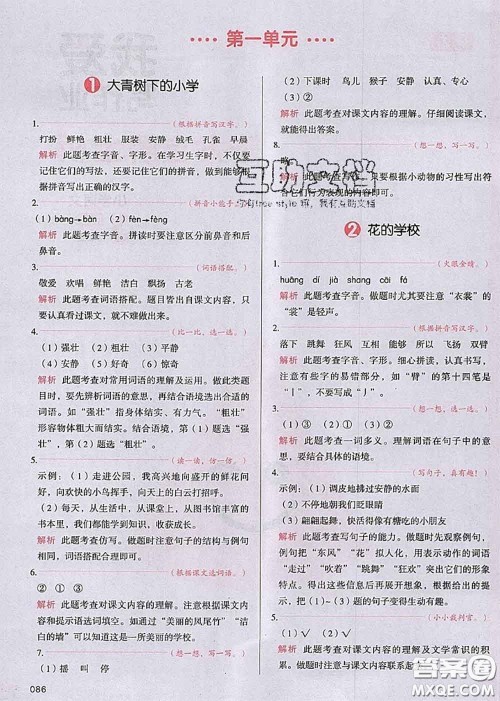 第一单元
1 大青树下的小学
1.（根据拼音写汉字。）
打扮 鲜艳 粗壮 服装 安静 绒毛 孔雀 早晨
解析 此题考查字音、字形。在学习生字时，不仅要
记住它们的写法，还要记住它们的读音，做到能够根
据拼音写出正确的汉字。
2.（拼音小能手。）
(1) bàng→bàn (2) fèn→fèng
解析 此题考查字音。拼读时要注意区分前鼻音和后
鼻音。
3.（词语搭配。）
敬爱 欢唱 鲜艳 洁白 飘扬 古老
解析 此题考查词语搭配。题目出自课文内容，只
要认真看过课文，就不难做出来。
4.（比一比，选一选。）
（1）强壮 （2）粗壮 （3）平静
（4）安静 （5）好奇 （6）惊奇
解析 此题考查对常用词语的理解及运用。做此类题
目时，要先辨析词语的意思，再结合语境选出合适的
词语。如“强壮”指身体结实、有力气。“粗壮”
形容物体粗大而结实。结合语境，第（1）题选“强
壮”，第（2）题选“粗壮”。
5.（读一读，仿一仿。）
示例：（1）走进公园，我高兴地向盛开的鲜花问
好，向欢快的小鸟挥手，向天上的白云打招呼。
（2）从动画片里，从名著里，从图书馆丰富的
图书里，我们都能学到知识，收获成长。
解析 此题考查仿写。做题时注意句子的结构与例句
相同，词语搭配合理即可。
6.（根据课文选词语。）
② ① ③
解析 此题考查对课文内容的理解。注意根据课文内
容及语境填写词语。如“美丽的凤尾竹”“洁
白的墙”可以知道这是一所美丽的学校。
7.（想一想，写一写。）
（1）摇 叫 停
086
（2）下课时 鸟儿 猴子 安静 认真、专心
（3）②
解析 此题考查对课文内容的理解。仔细阅读课文，
就能得出答案。
8.（想一想，写一写。）
2 花的学校
1.（火眼金睛。）
huāng dí jià shang cǎi
解析 此题考查字音。做题时尤其要注意“衣裳”的
“裳”是轻声。
2.（根据拼音写汉字。）
落下 跳舞 狂风 互相 能够 所以 手臂 猛烈
解析 此题考查字音、字形。细心拼读，认真书写，
注意有些字的易错部分，如“臂”的第十四笔是
“丨”，不要写成“亅”。
3.（想一想，选一选。）
② ③ ①
解析 此题考查一词多义。理解词语在句子中的意
思，要结合具体的语境。
4.（写句子，真有趣！）
示例：（1）调皮地拂过安静的水面
（2）不停地敲打着窗户
（3）翩翩起舞，快乐得像有糖吃的小朋友
解析 此题考查写句子的能力。做题时先观察例句，
句子把“东风”“花”拟人化，用表示动作的词语
“走过”“吹着”“跳舞”“狂欢”来突出它们的形象
特点。得出这些信息后再展开联想，使想出的内容
与第（1）（2）题的句子变得生动形象。
5.（小小裁判官。）
解析 此题考查对课文内容的理解及文学常识的积
累。做题时注意与课文内容联系起来。
互助文档
答案圈
MXQE.COM